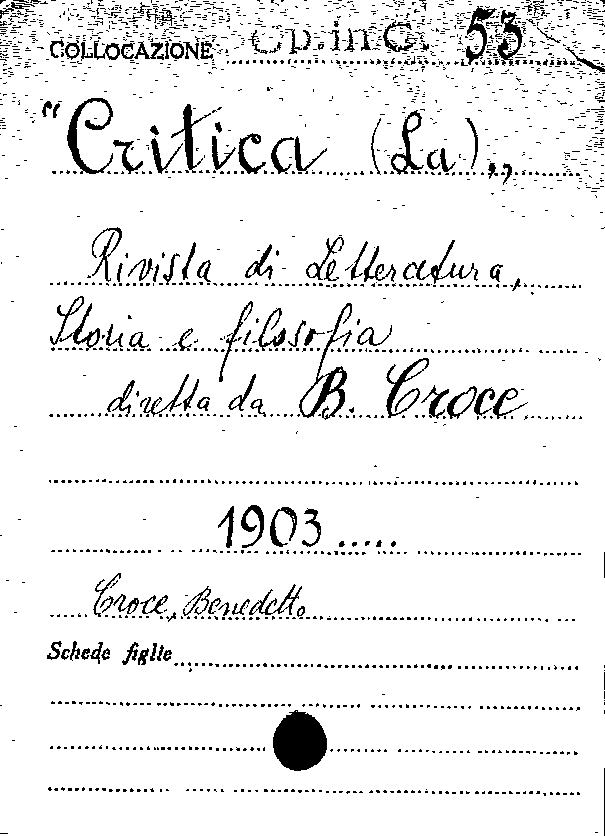 COLLOCAZIONE Op. in C. 53
"Critica (La),,
Rivista di Letteratura,
Storia e filosofia
diretta da B. Croce
1903.....
Croce, Benedetto
Schede figlie